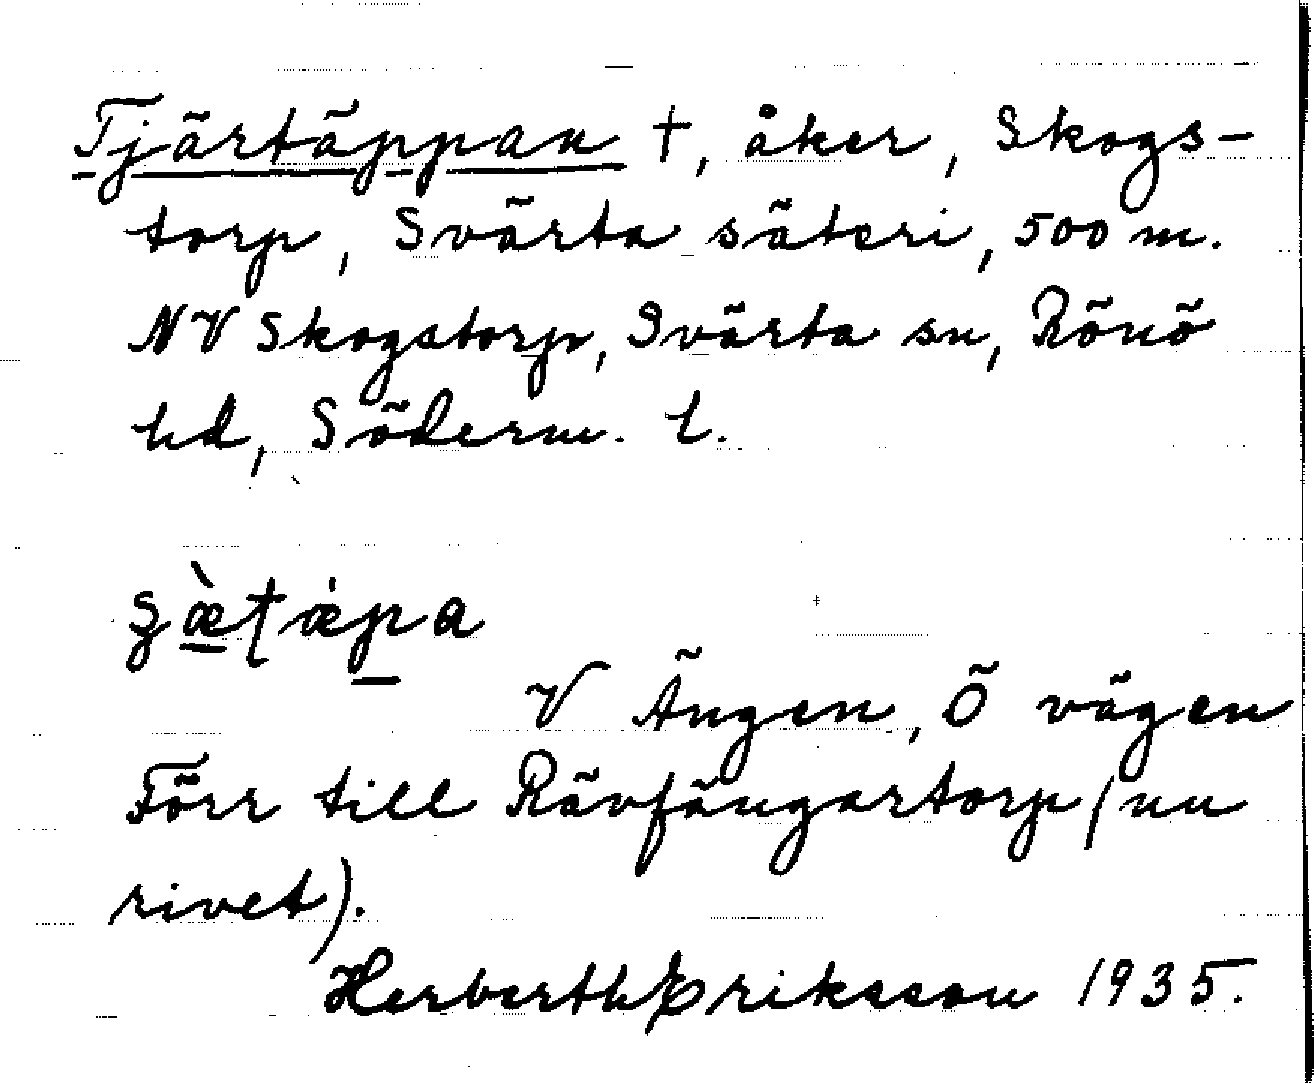 Tjärtäppan †, åker, Skogs-
torp, Svärta säteri, 500 m.
NV Skogstorp, Svärta sn, Rönö
hd, Söderm. l.
V Ängen, Ö vägen
Förr till Rävfångartorp (nu
rivet).
Herberth Eriksson 1935.